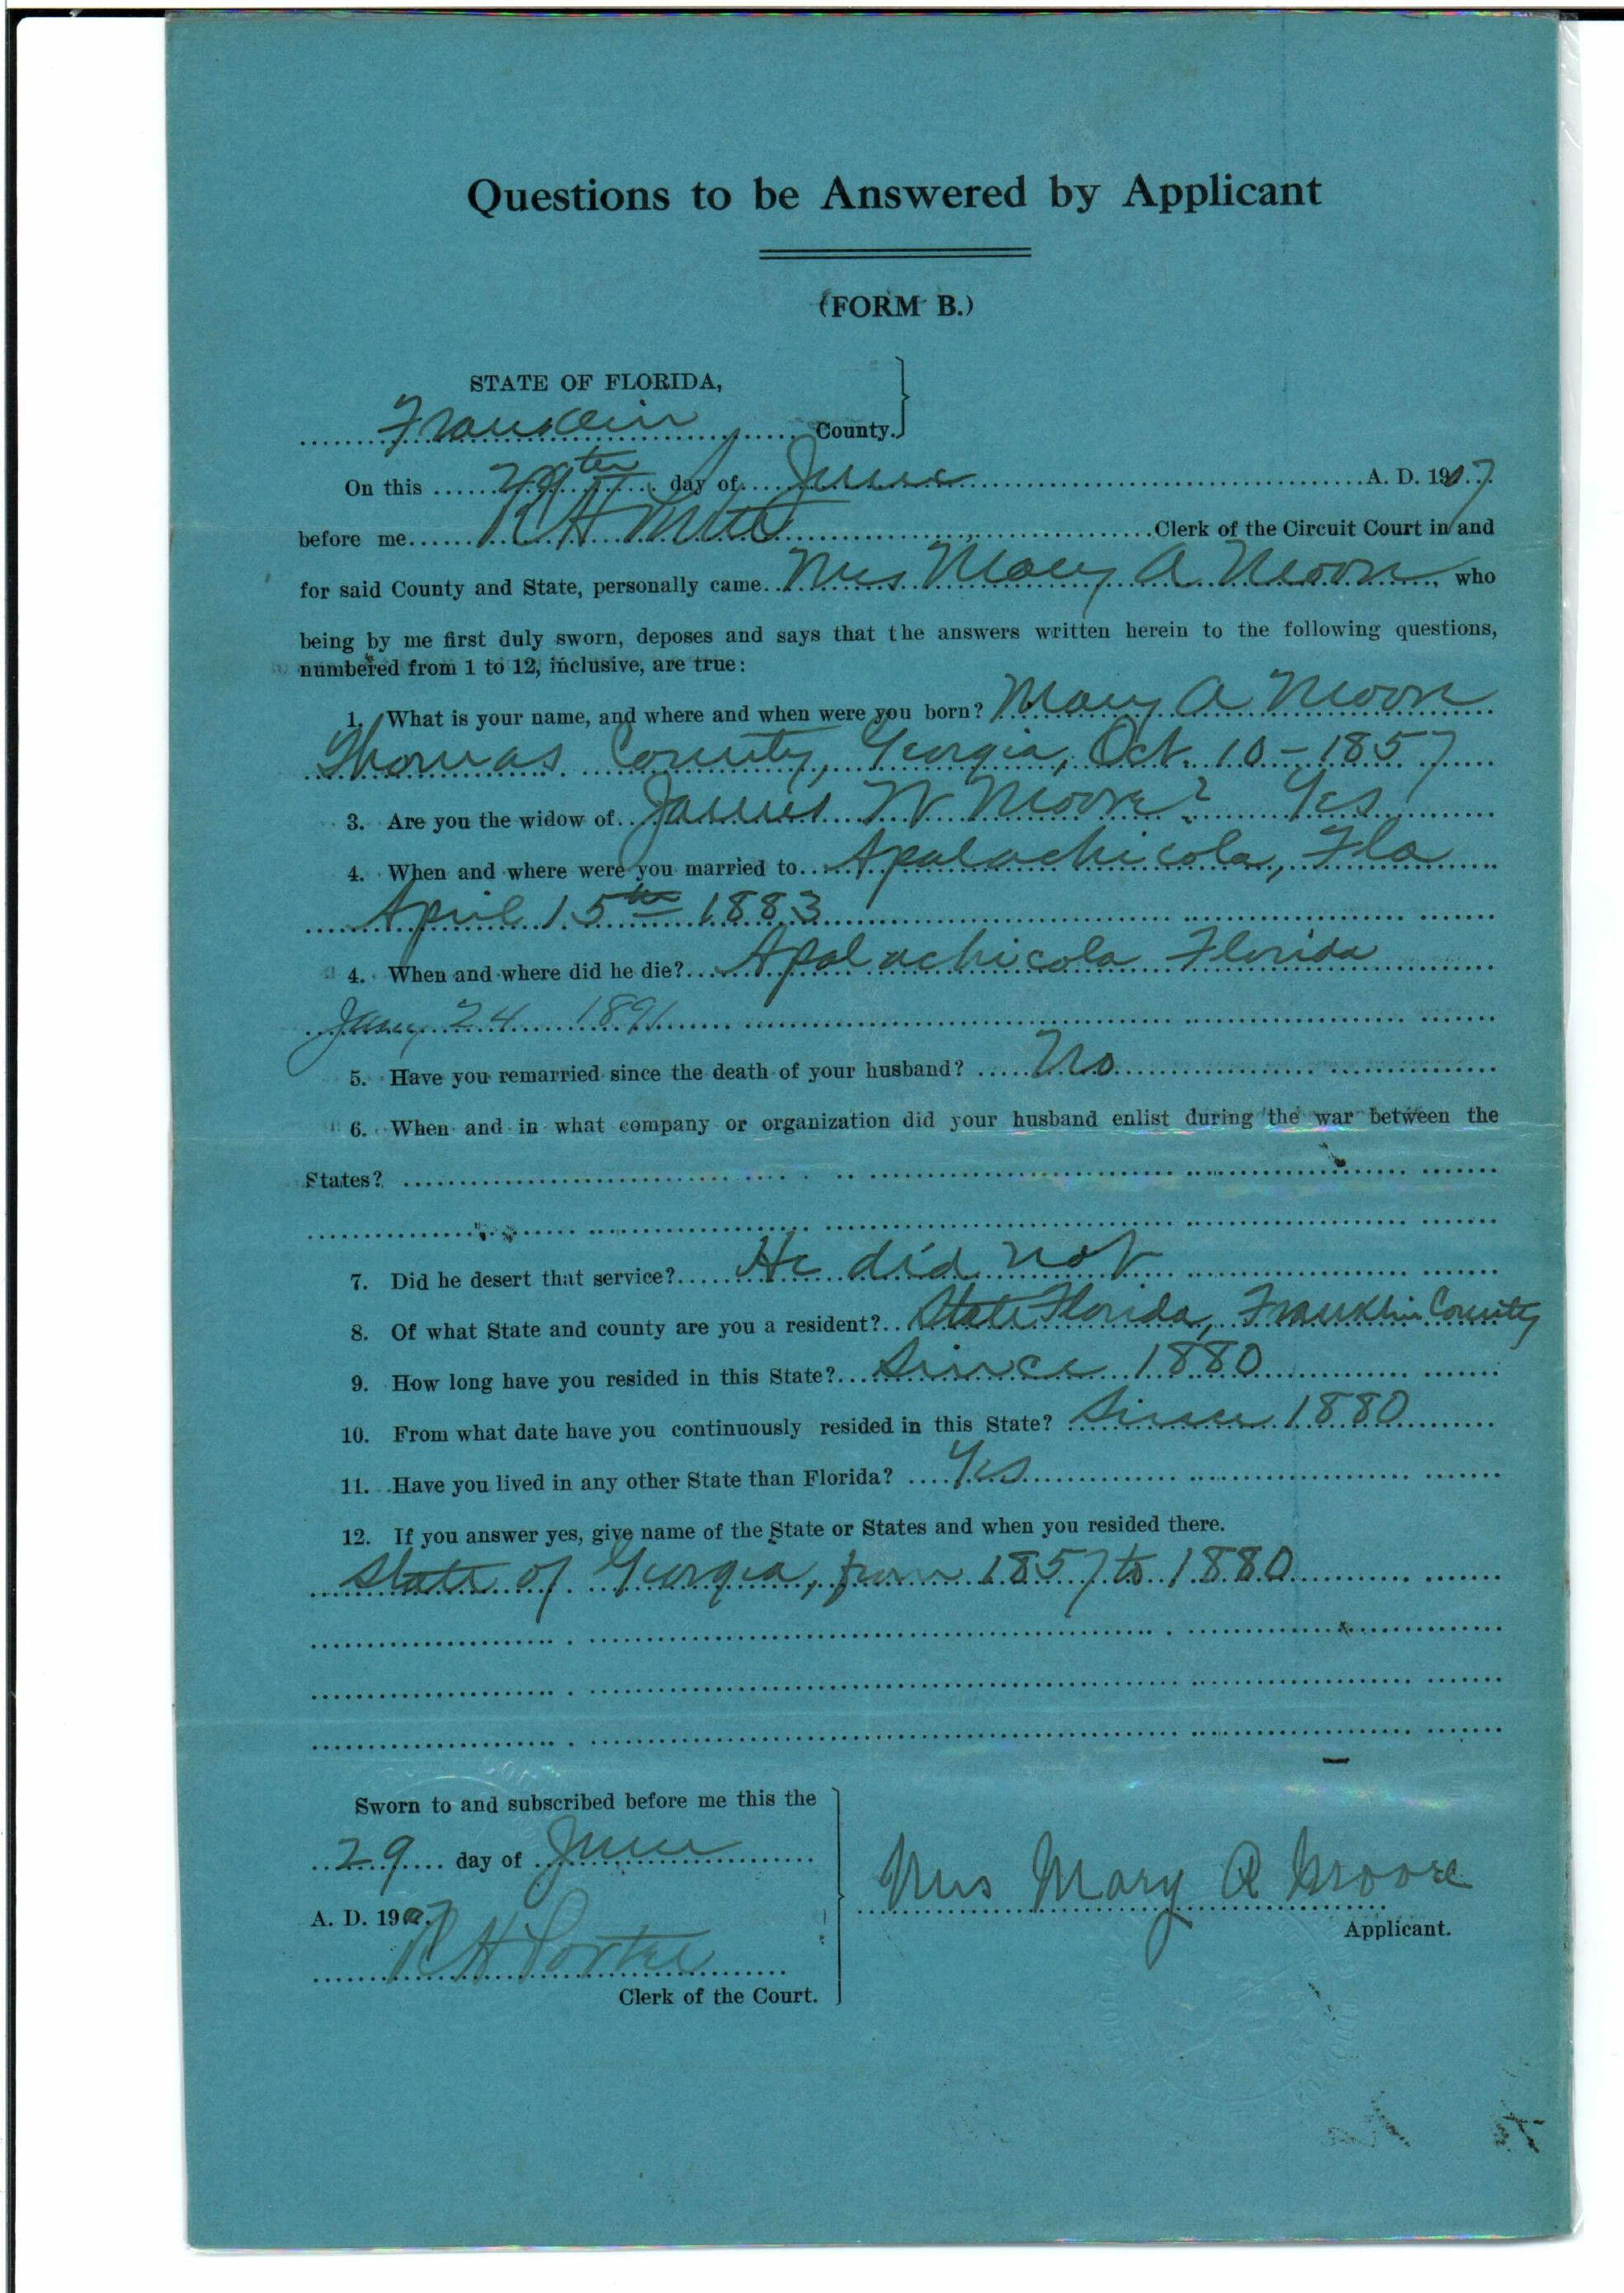 Questions to be Answered by Applicant
(FORM B.)
STATE OF FLORIDA,
Franklin County.
On this 29th day of June A. D. 1907
before me R H Clerk of the Circuit Court in and
for said County and State, personally came Mrs Mary A Moore, who
being by me first duly sworn, deposes and says that the answers written herein to the following questions,
numbered from 1 to 12, inclusive, are true:
1. What is your name, and where and when were you born? Mary A Moore
Thomas County, Georgia, Oct. 10 - 1857
3. Are you the widow of James W Moore? Yes
4. When and where were you married to Apalachicola, Fla
April 15th 1883
4. When and where did he die? Apalachicola Florida
Jany 24 1891
5. Have you remarried since the death of your husband? No
6. When and in what company or organization did your husband enlist during the war between the
States?
7. Did he desert that service? He did not
8. Of what State and county are you a resident? State Florida, Franklin County
9. How long have you resided in this State? Since 1880
10. From what date have you continuously resided in this State? Since 1880
11. Have you lived in any other State than Florida? Yes
12. If you answer yes, give name of the State or States and when you resided there.
State of Georgia, from 1857 to 1880
Sworn to and subscribed before me this the
29 day of June
A. D. 1907
R H Porter
Clerk of the Court.
Mrs Mary A Moore
Applicant.